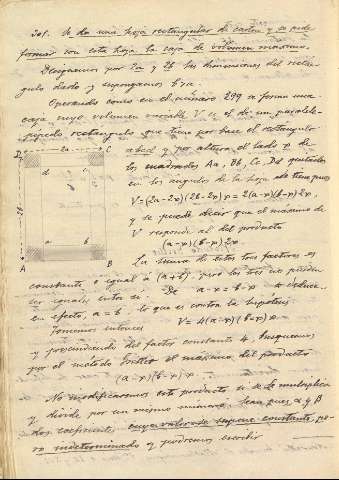 301. Se da una hoja rectangular de carton y se pide
formar con esta hoja la caja de volumen máximo.
Designemos por 2a y 2b las dimensiones del rectan-
gulo dado y supongamos b>a.
Operando como en el número 299 se forma una
caja cuyo volumen variable V es el de un paralele-
pípedo rectangulo que tiene por base el rectangulo
abcd y por altura el lado x de
los cuadrados Aa, Bb, Cc, Dd quitados
en los angulos de la hoja. Se tiene pues
V=(2a-2x)(2b-2x)x = 2(a-x)(b-x)2x,
y se puede decir que el máximo de
V responde al del producto
(a-x)(b-x)2x
La suma de estos tres factores es
constante e igual á (a+b), pero los tres no pueden
ser iguales entre si. De a-x=b-x se deduce
en efecto, a=b, lo que es contra la hipotesis
Tomemos entonces V=4(a-x)(b-x)x
y prescindiendo del factor constante 4, busquemos
por el método el máximo del producto
(a-x)(b-x)x
No modificaremos este producto si se le multiplica
y divide por un mismo numero. Sean pues α y β
dos coeficientes cuyo valor se supone constante, pe-
ro indeterminado y podremos escribir
2a
2b
D
d
c
a
b
A
B